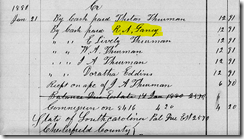 1881 Cr
Jan. 21 By Cash paid Philas Thurman 12 91
By Cash paid R. A. Taney 12 91
" " C Lively Thurman 12 91
" " W. A. Thurman 12 91
" " J A Thurman 12 91
" " Doratha Eddins 12 91
Kept on a/c of J A Thurman 12 91
Balance Due
Commission on $416 4 20
State of South Carolina
Chesterfield County